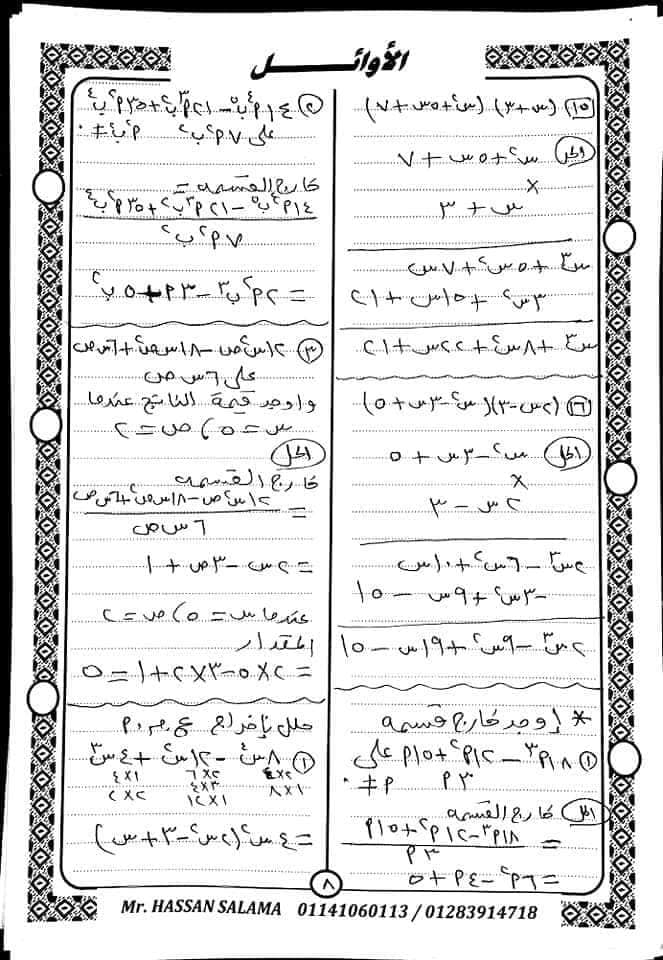 الأوائل
١٥) (س + ٣) (س٢ + ٥س + ٧)
الحل س٢ + ٥س + ٧
×
س + ٣
س٣ + ٥س٢ + ٧س
٣س٢ + ١٥س + ٢١
س٣ + ٨س٢ + ٢٢س + ٢١
١٦) (٢س - ٣)(س٢ - ٣س + ٥)
الحل س٢ - ٣س + ٥
×
٢س - ٣
٢س٣ - ٦س٢ + ١٠س
-٣س٢ + ٩س - ١٥
٢س٣ - ٩س٢ + ١٩س - ١٥
* أوجد خارج قسمة
١) ١٨م٣ - ١٢م٢ + ١٥م على
٣م م ≠ ٠
الحل خارج القسمة
= ١٨م٣ - ١٢م٢ + ١٥م
٣م
= ٦م٢ - ٤م + ٥
٢) ١٤م٢ب٥ - ٢١م٣ب٢ + ٣٥م٢ب٤
على ٧م٢ب٢ م٢ب٢ ≠ ٠
خارج القسمة =
١٤م٤ب٥ - ٢١م٣ب٢ + ٣٥م٢ب٤
٧م٢ب٢
= ٢م٢ب٣ - ٣م + ٥ب٢
٣) ١٢س٢ص - ١٨س ص٢ + ٦س ص
على ٦س ص
وأوجد قيمة الناتج عندما
س = ٥ ، ص = ٢
الحل
خارج القسمة
= ١٢س٢ص - ١٨س ص٢ + ٦س ص
٦س ص
= ٢س - ٣ص + ١
عندما س = ٥ ، ص = ٢
المقدار
= ٢×٥ - ٣×٢ + ١ = ٥
حلل بإخراج ع.م.م
١) ٨س٤ - ١٢س٢ + ٤س٣
٢×٤ ٢×٦ ١×٤
١×٨ ٣×٤ ٢×٢
١×١٢
= ٤س٢(٢س٢ - ٣ + س)
٨
Mr. HASSAN SALAMA 01141060113 / 01283914718